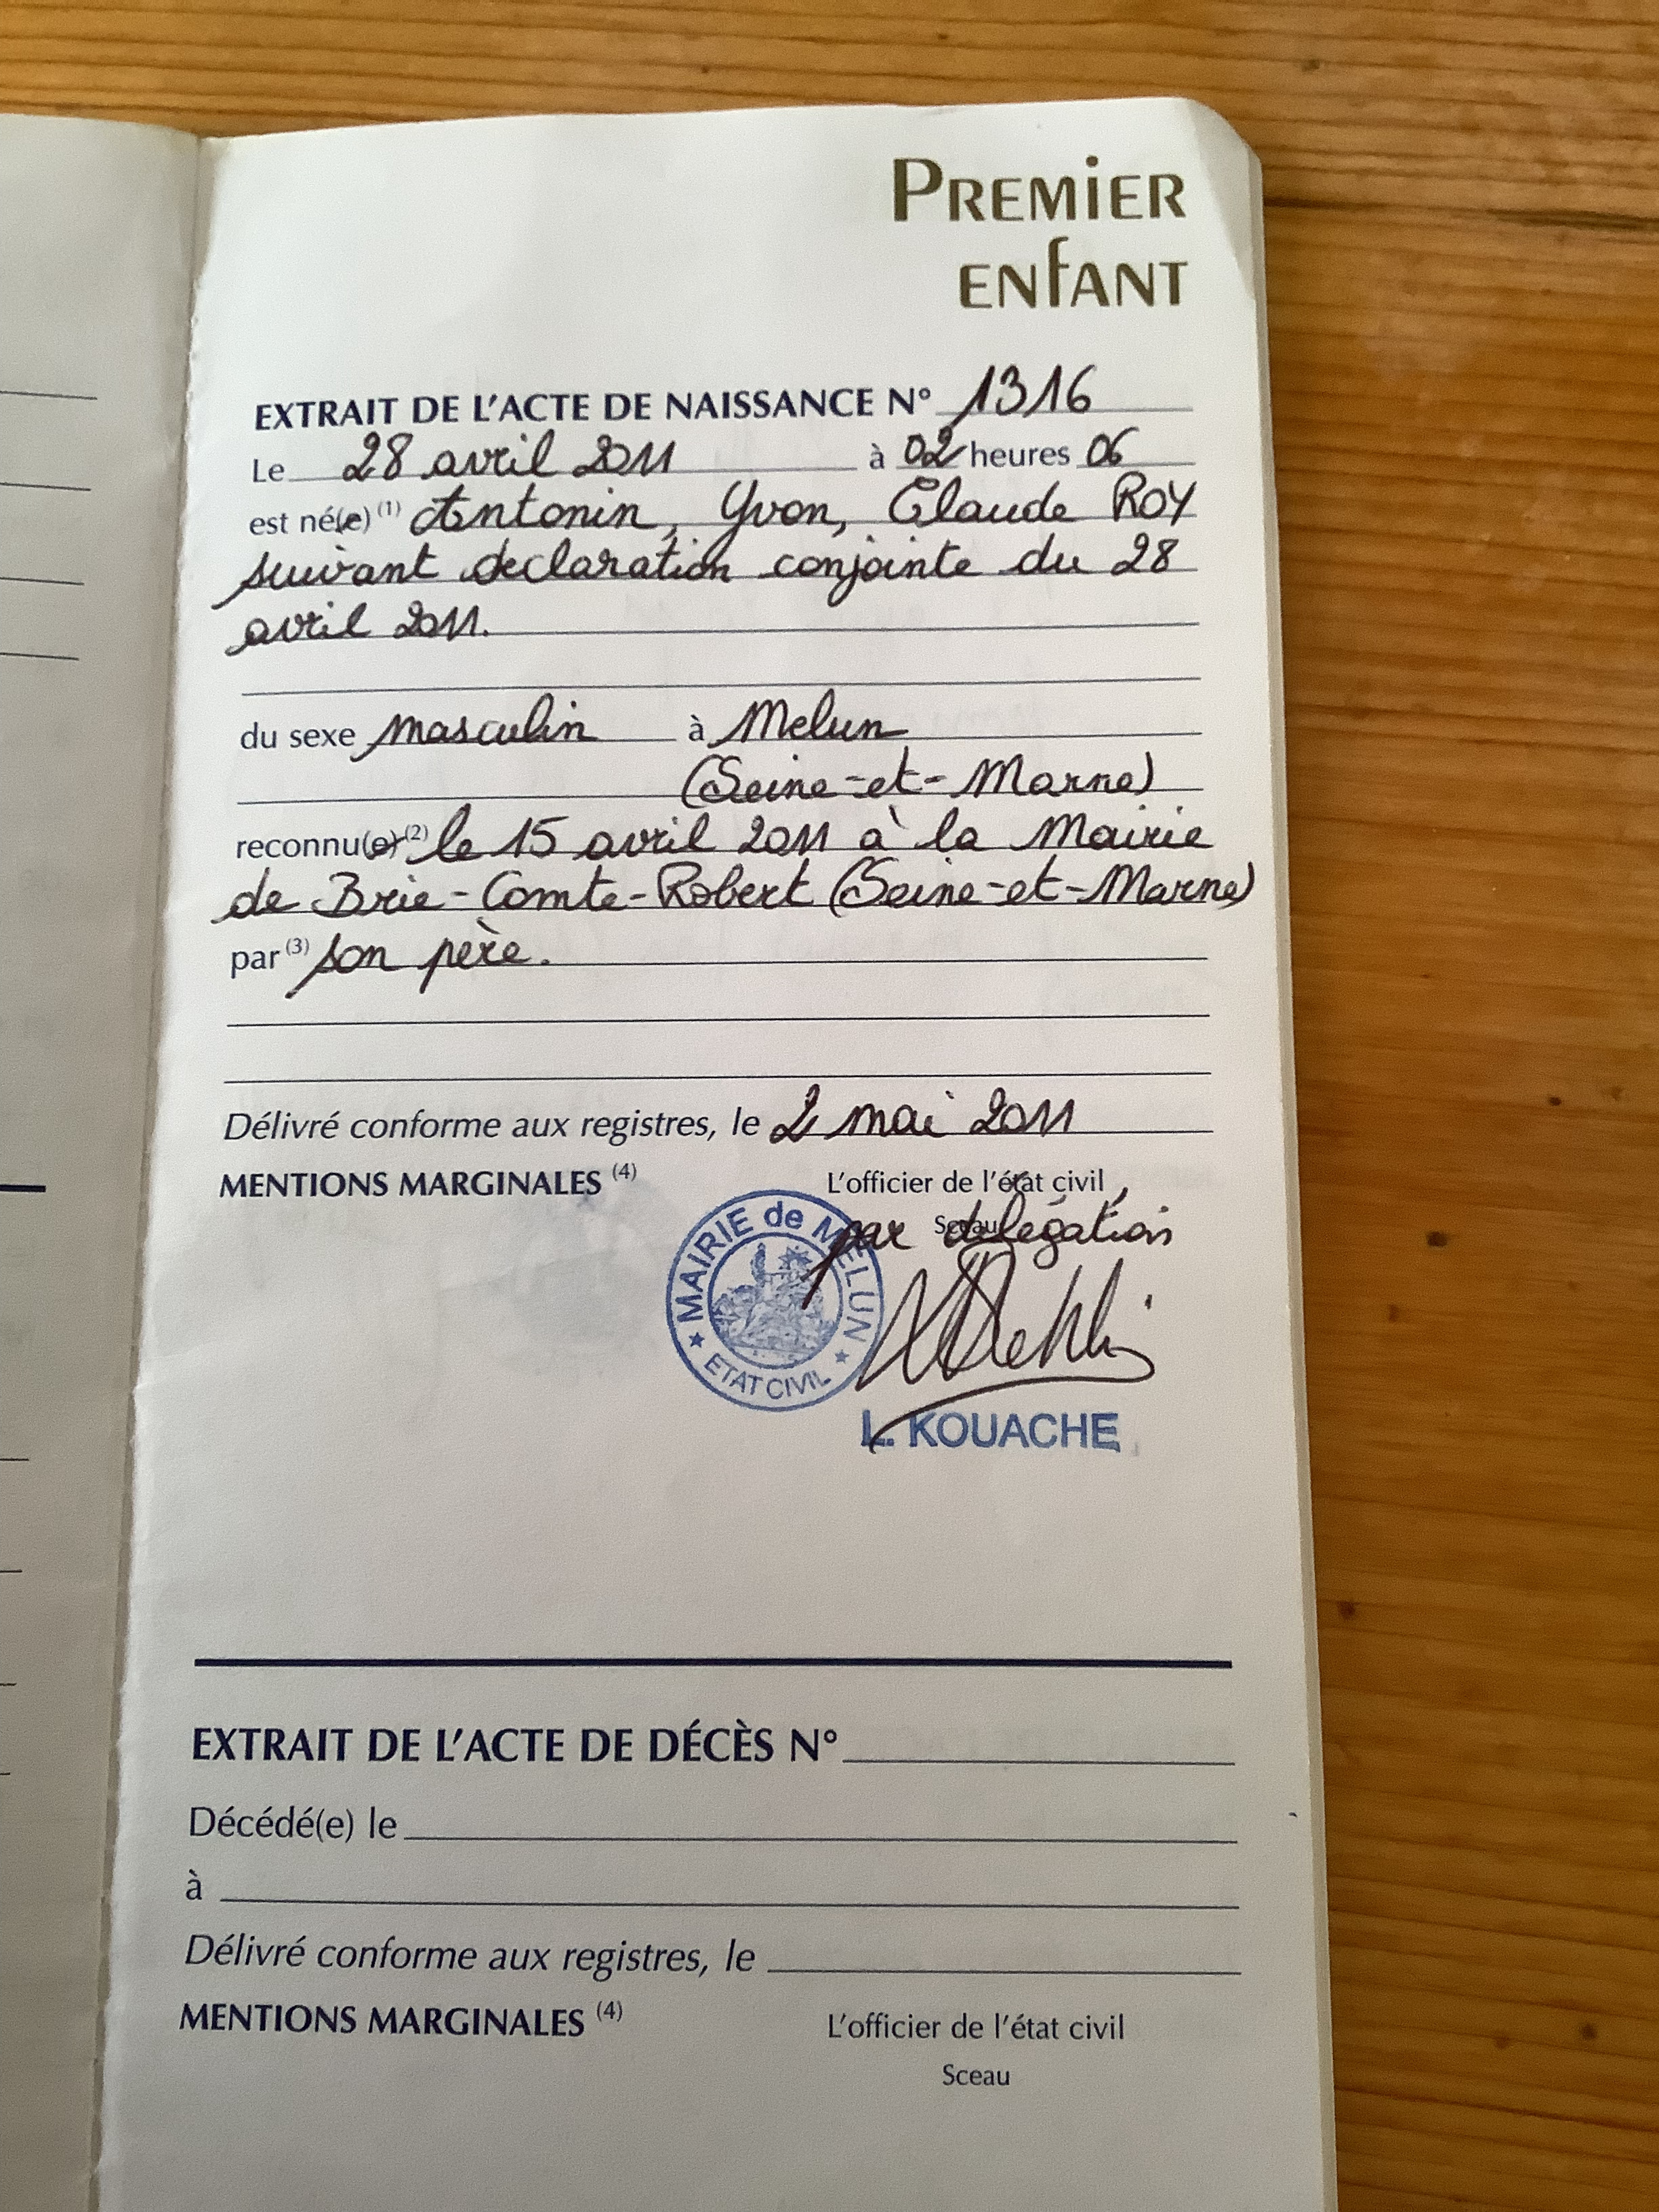 PREMIER
ENFANT
EXTRAIT DE L'ACTE DE NAISSANCE N° 1316
Le 28 avril 2011 à 02 heures 06
est né(e) (1) Antonin, Yvon, Claude ROY
suivant declaration conjointe du 28
avril 2011.
du sexe masculin à Melun
(Seine-et-Marne)
reconnu(e) (2) le 15 avril 2011 à la Mairie
de Brie-Comte-Robert (Seine-et-Marne)
par (3) son père.
Délivré conforme aux registres, le 2 mai 2011
MENTIONS MARGINALES (4) L'officier de l'état civil
Sceau
par délégation
MAIRIE de MELUN
ETAT CIVIL
L. KOUACHE
EXTRAIT DE L'ACTE DE DÉCÈS N°
Décédé(e) le
à
Délivré conforme aux registres, le
MENTIONS MARGINALES (4) L'officier de l'état civil
Sceau